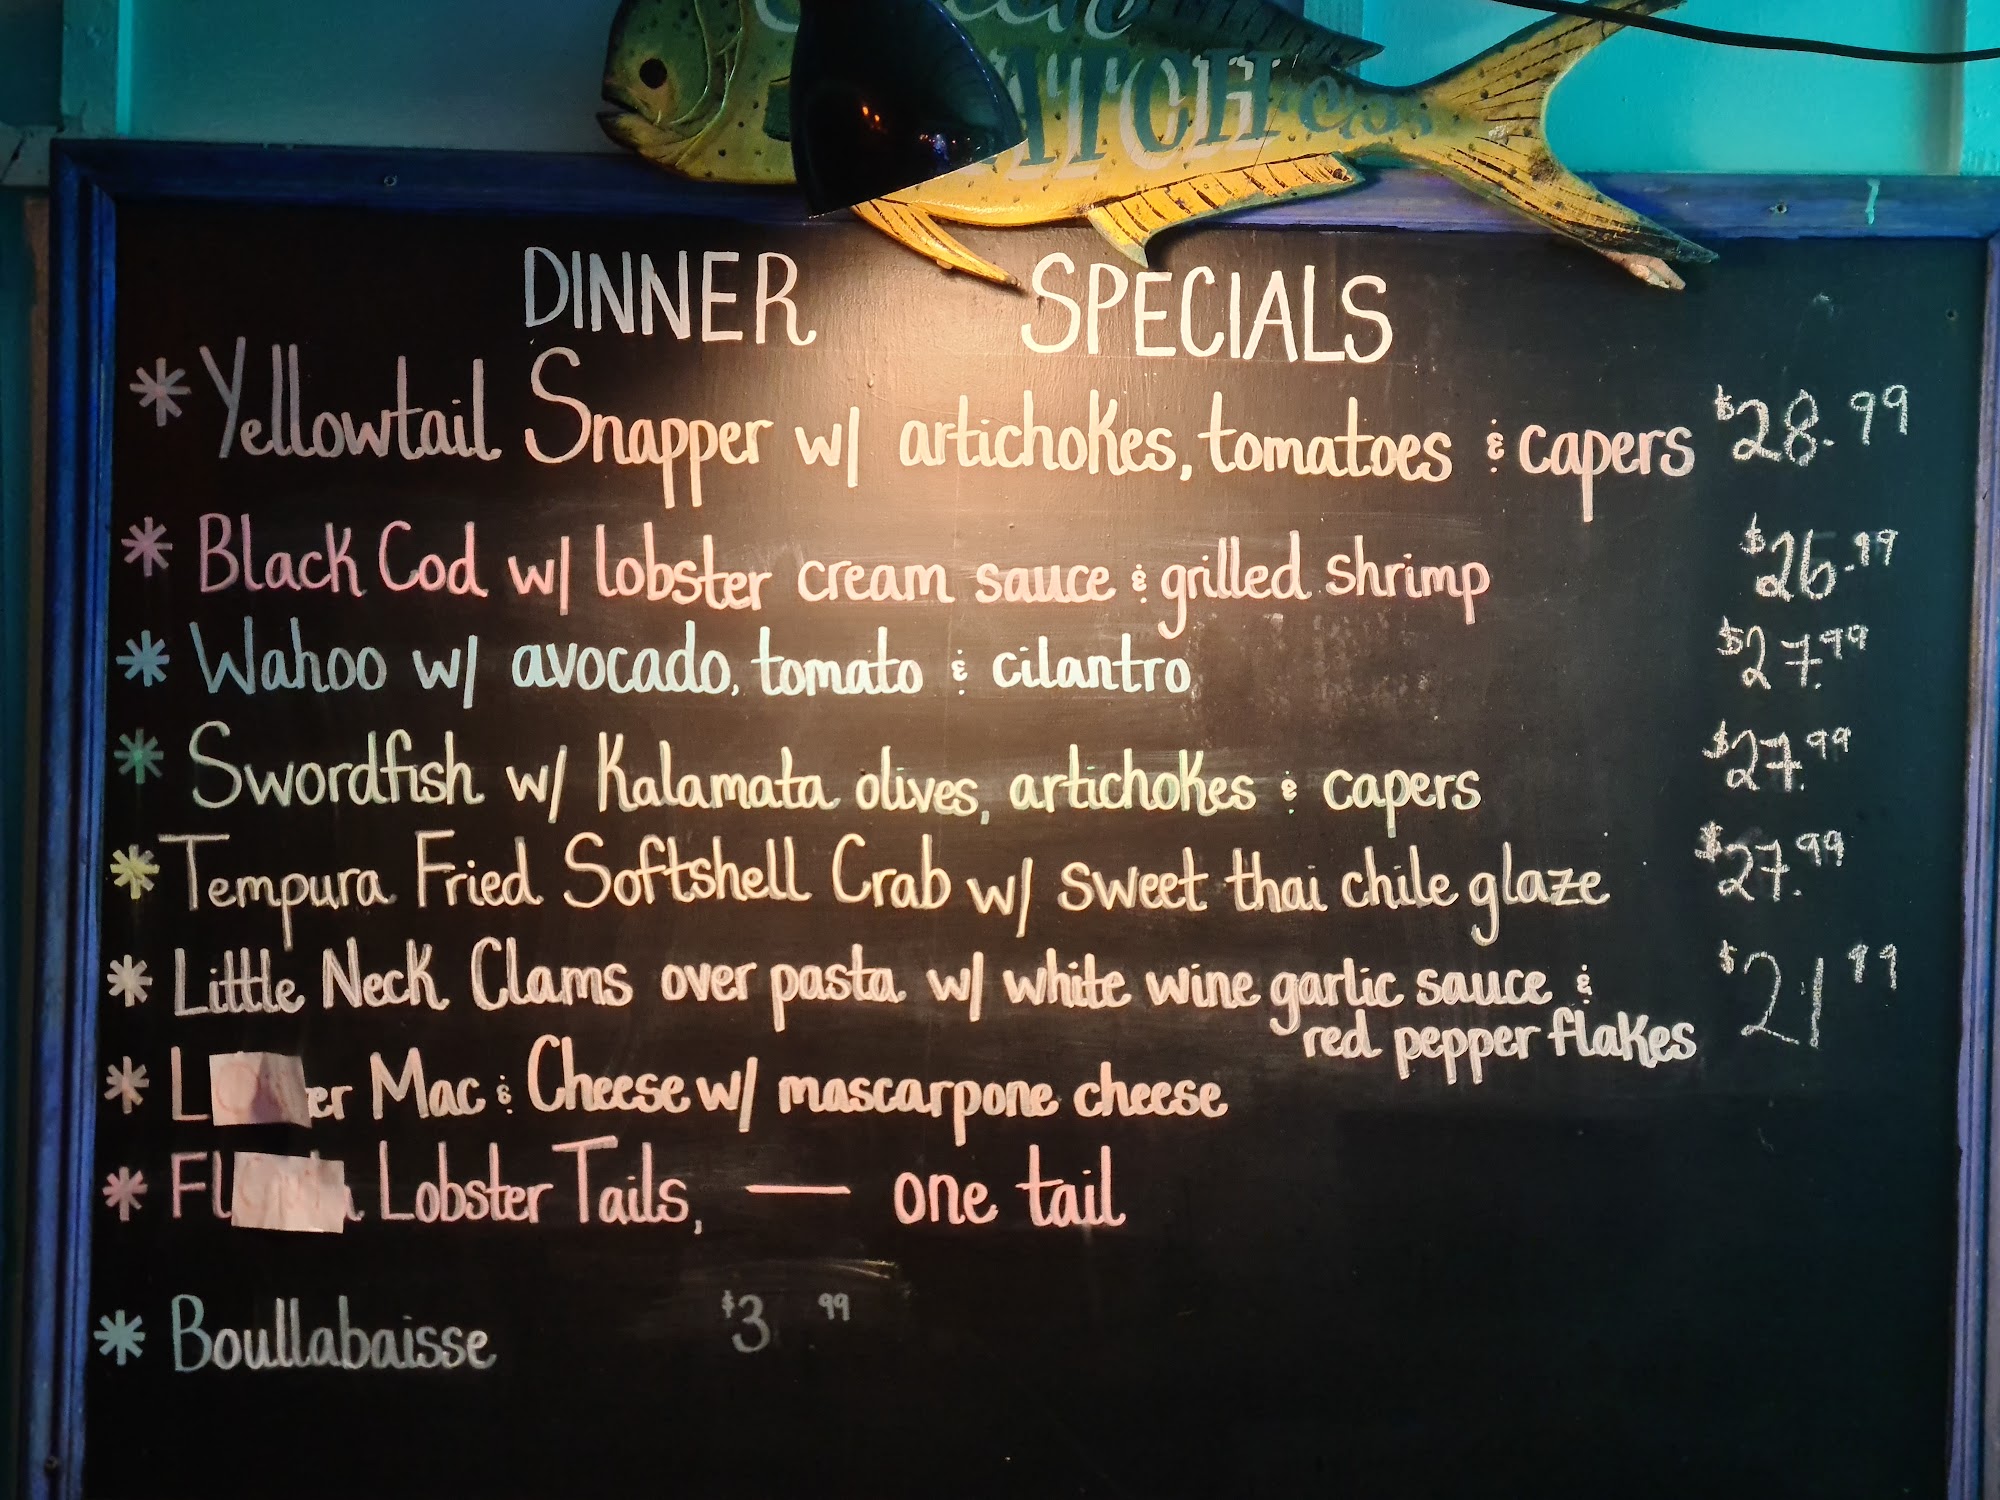 ATCH Co.
DINNER SPECIALS
* Yellowtail Snapper w/ artichokes, tomatoes & capers $28.99
* Black Cod w/ lobster cream sauce & grilled shrimp $26.99
* Wahoo w/ avocado, tomato & cilantro $27.99
* Swordfish w/ Kalamata olives, artichokes & capers $27.99
* Tempura Fried Softshell Crab w/ sweet thai chile glaze $27.99
* Little Neck Clams over pasta w/ white wine garlic sauce & $21 99
red pepper flakes
* Mac & Cheese w/ mascarpone cheese
* Lobster Tails, — one tail
* Boullabaisse $3 99